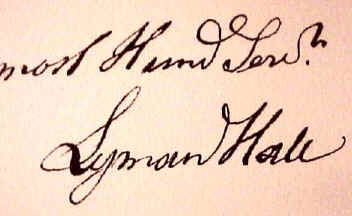 most Humd Servt.
Lyman Hall